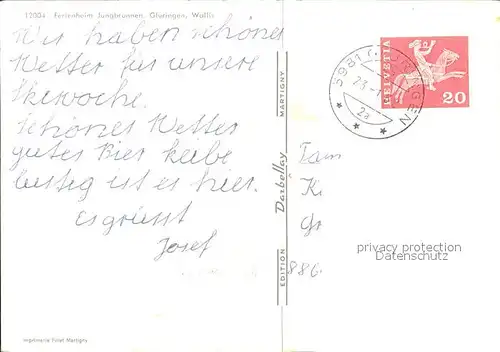 12004 Ferienheim Jungbrunnen, Gluringen, Wallis
Wir haben schönes
Wetter für unsere
Skiwoche.
Schönes Wetter
gutes Bier
lustig ist es hier.
Es grüsst
Josef
Imprimerie Pillet Martigny
EDITION Darbellay MARTIGNY
5981 GLURINGEN
23.-1
2a
HELVETIA
20
Fam
K
Gr
886
privacy protection
Datenschutz